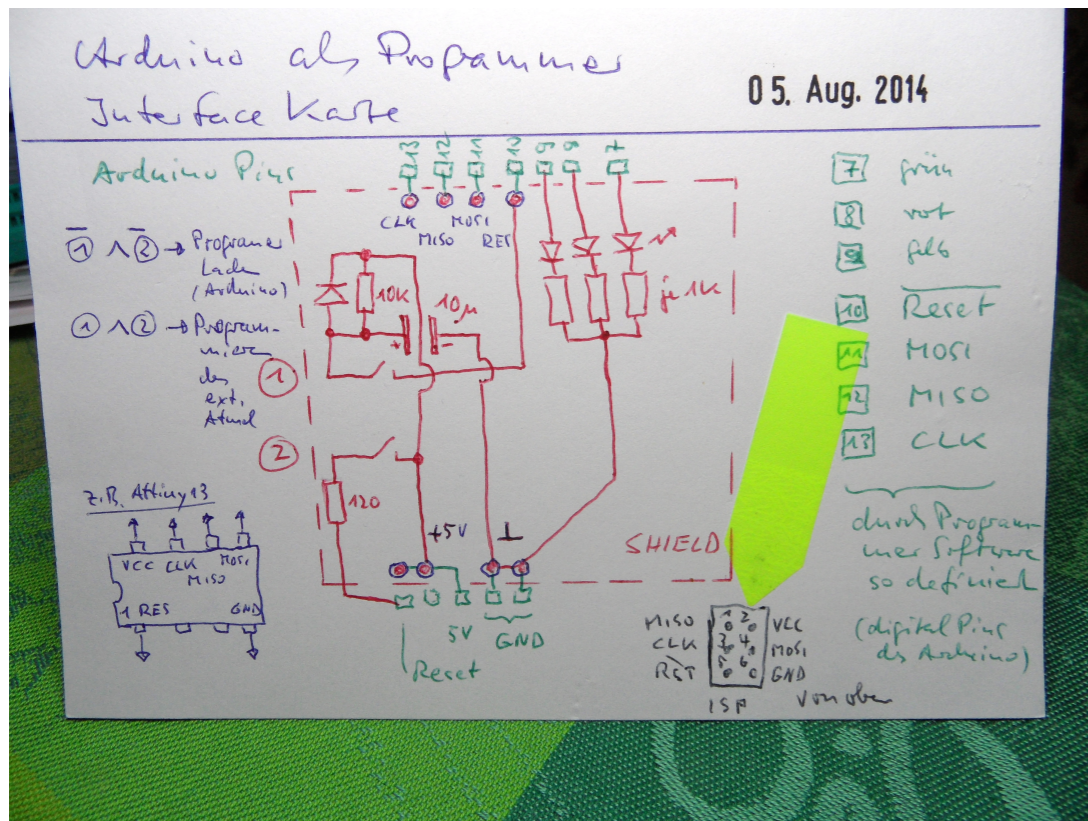 Arduino als Programmer
Interface Karte
05. Aug. 2014
Arduino Pins
13 12 11 10 9 8 7
CLK
MISO
MOSI
RES
1 ∧ 2 → Programer
Laden
(Arduino)
1 ∧ 2 → Program-
mieren
des
ext.
Atmel
10K
10µ
+
-
je 1K
1
2
120
+5V
⊥
SHIELD
5V
GND
Reset
z.B. Attiny13
VCC CLK MISO MOSI
1 RES GND
7 grün
8 rot
9 gelb
10 Reset
11 MOSI
12 MISO
13 CLK
durch Program-
mer Software
so definiert
(digital Pins
des Arduino)
MISO 1 2 VCC
CLK 3 4 MOSI
RST 5 6 GND
ISP von oben